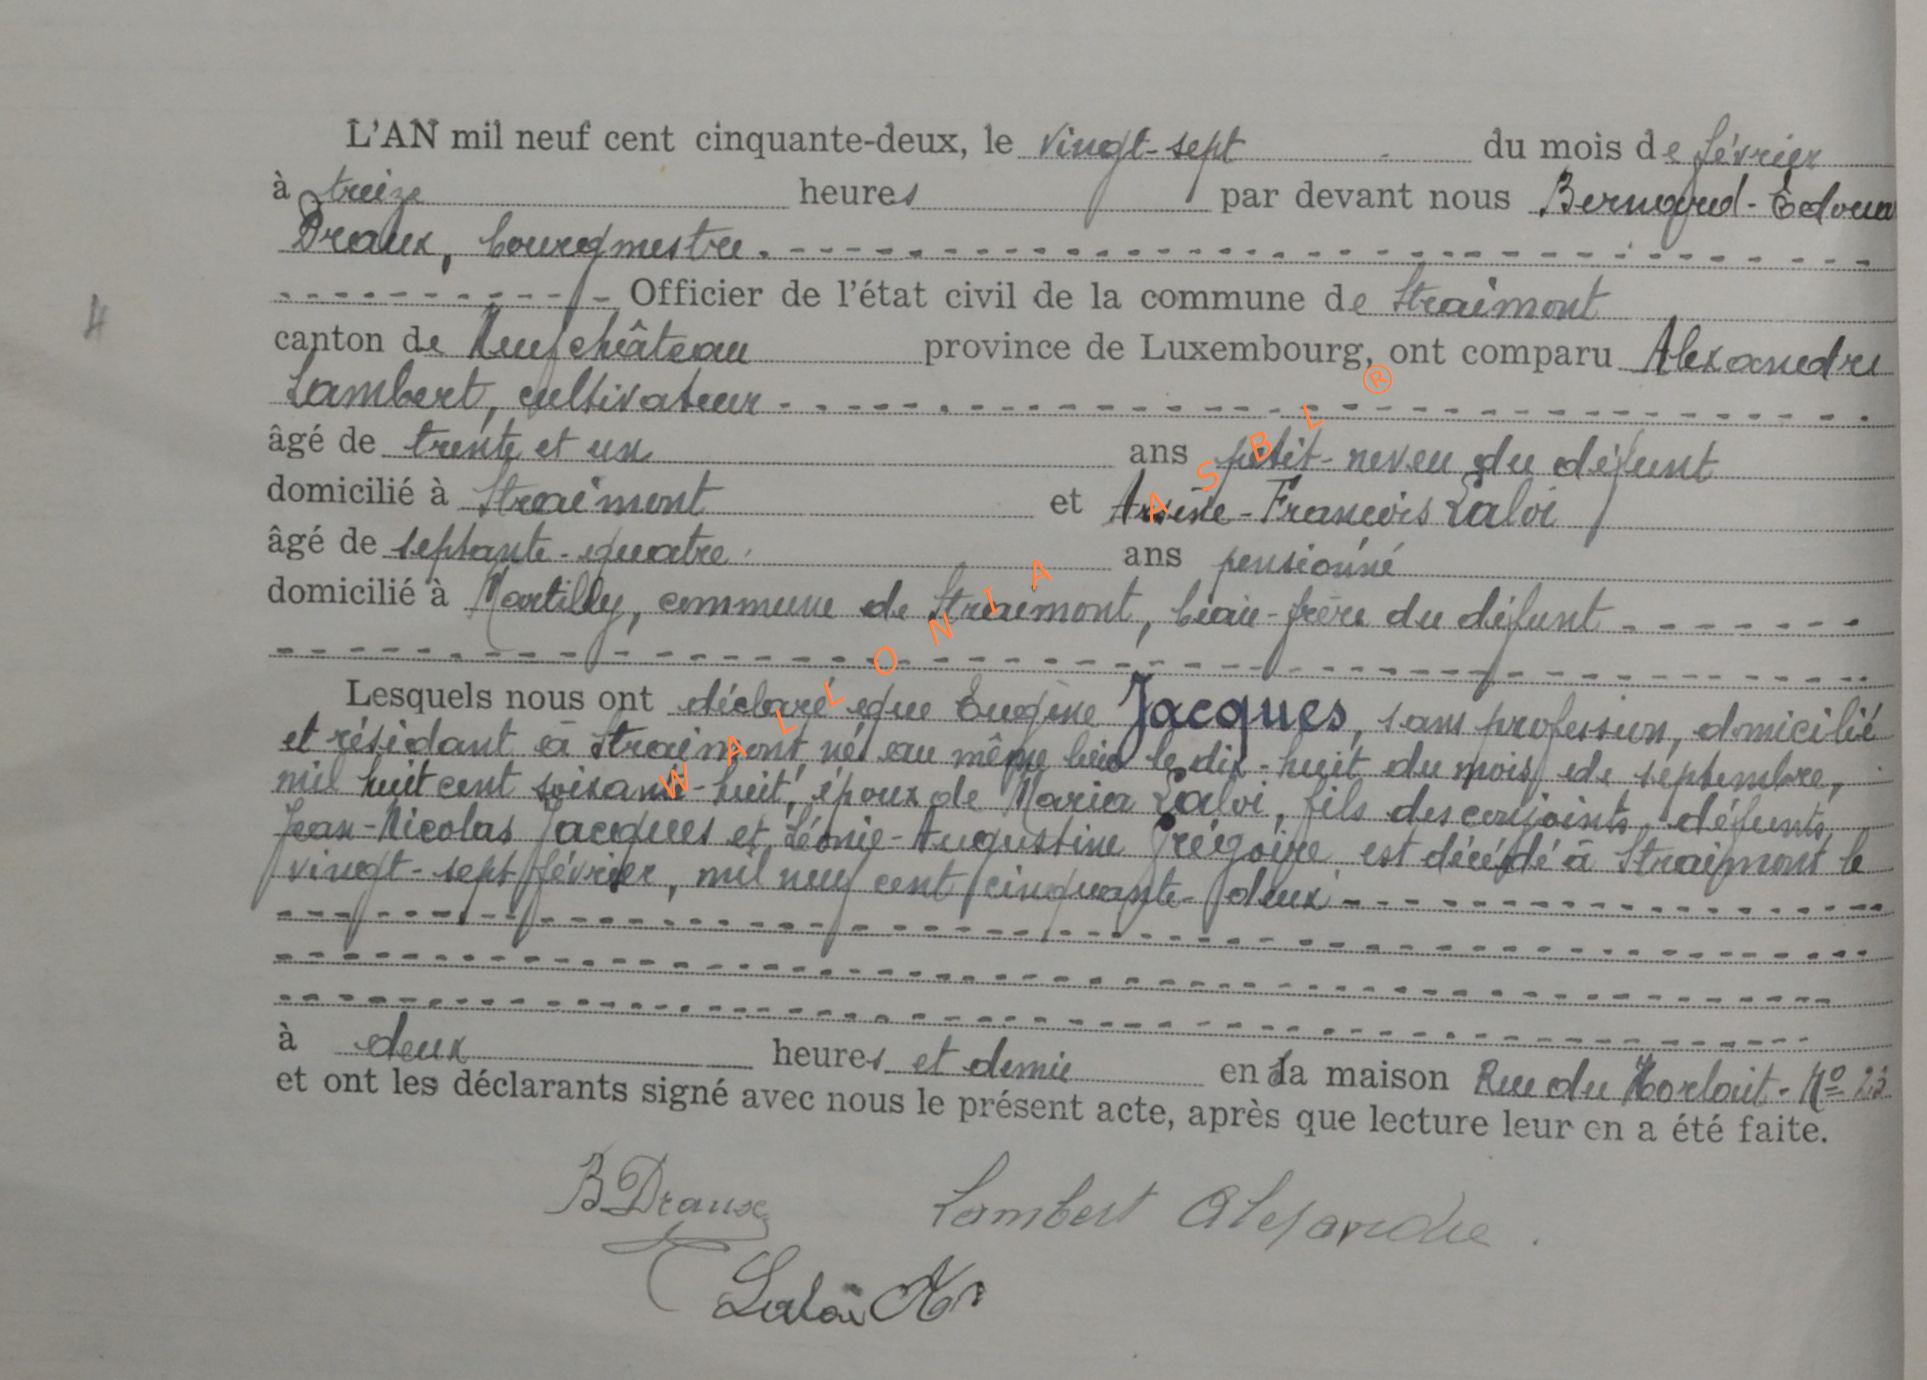 L'AN mil neuf cent cinquante-deux, le vingt-sept du mois de février
à treize heures par devant nous Bernard-Edoua
Draux, bourgmestre.
Officier de l'état civil de la commune de Straimont
4
canton de Neufchâteau province de Luxembourg, ont comparu Alexandre
Lambert, cultivateur
âgé de trente et un ans petit-neveu du défunt
domicilié à Straimont et Arsène-François Laloi
âgé de septante-quatre ans pensionné
domicilié à Martilly, commune de Straimont, beau-frère du défunt
Lesquels nous ont déclaré que Eugène Jacques, sans profession, domicilié
et résidant à Straimont né au même lieu le dix-huit du mois de septembre,
mil huit cent soixante-huit, époux de Maria Laloi, fils des conjoints défunts
Jean-Nicolas Jacques et Léonie-Augustine Grégoire est décédé à Straimont le
vingt-sept février, mil neuf cent cinquante-deux
à deux heures et demie en la maison Rue du Horlait - N°
et ont les déclarants signé avec nous le présent acte, après que lecture leur en a été faite.
B Draux Lambert Alexandre.
Laloi Ar
WALLONIA ASBL ®